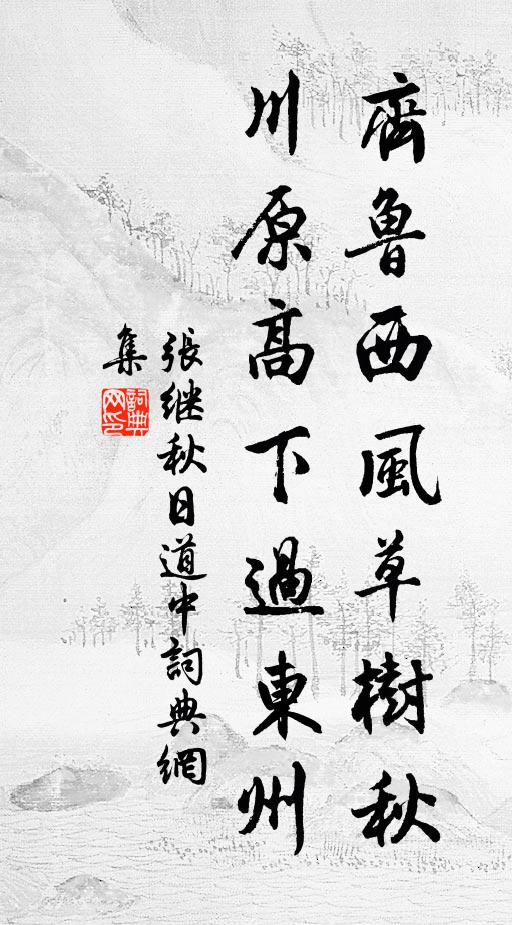 齊魯西風草樹秋
川原高下過東州
張继秋日道中詞典網
集
詞典
网印